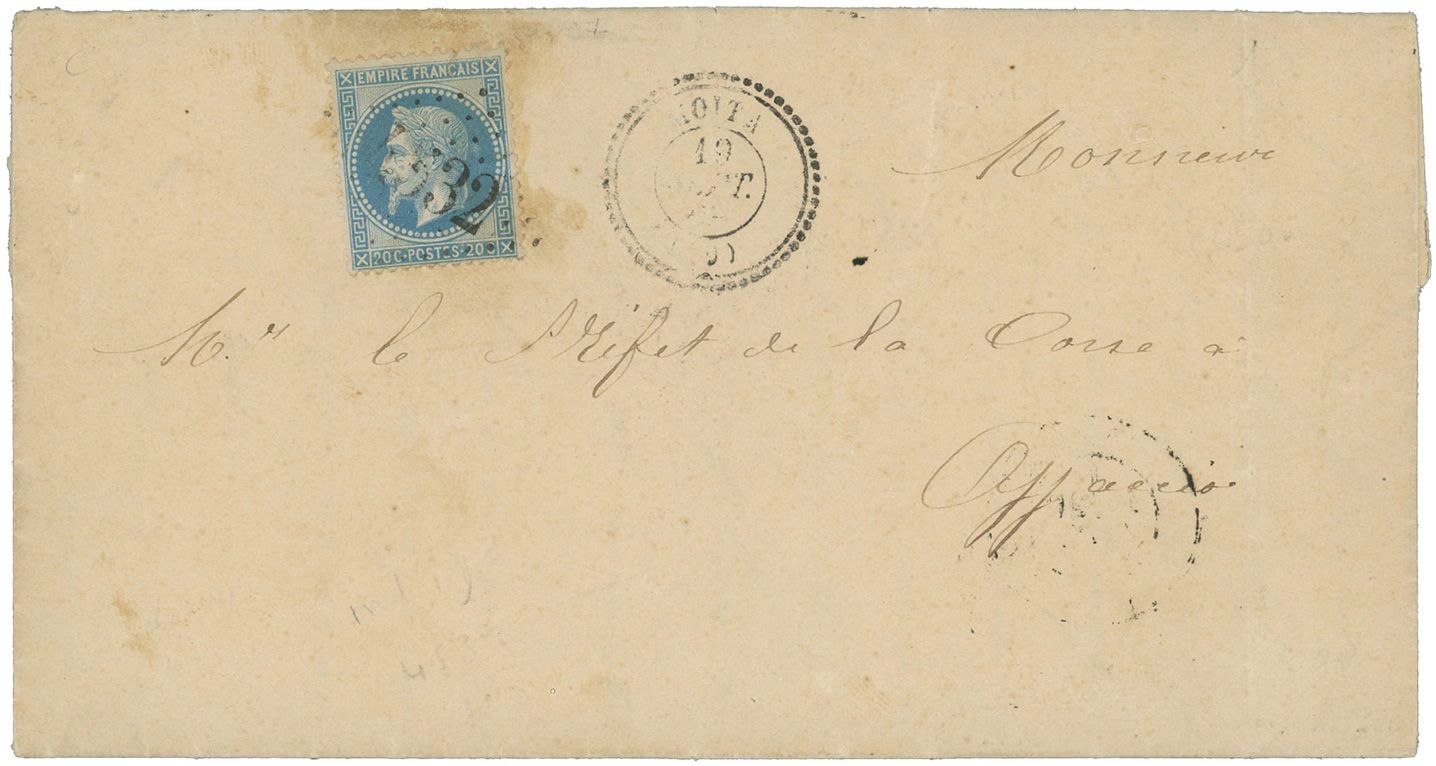 EMPIRE FRANÇAIS
20C·POSTES·20C
532
MOITA
19
Monsieur
M.r le Préfet de la Corse à
Ajjaccio